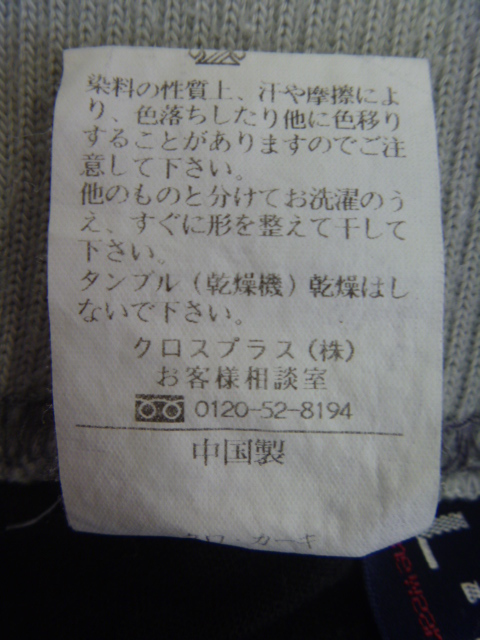 染料の性質上、汗や摩擦によ
り、色落ちしたり他に色移り
することがありますのでご注
意して下さい。
他のものと分けてお洗濯のう
え、すぐに形を整えて干して
下さい。
タンブル（乾燥機）乾燥はし
ないで下さい。
クロスプラス（株）
お客様相談室
0120-52-8194
中国製